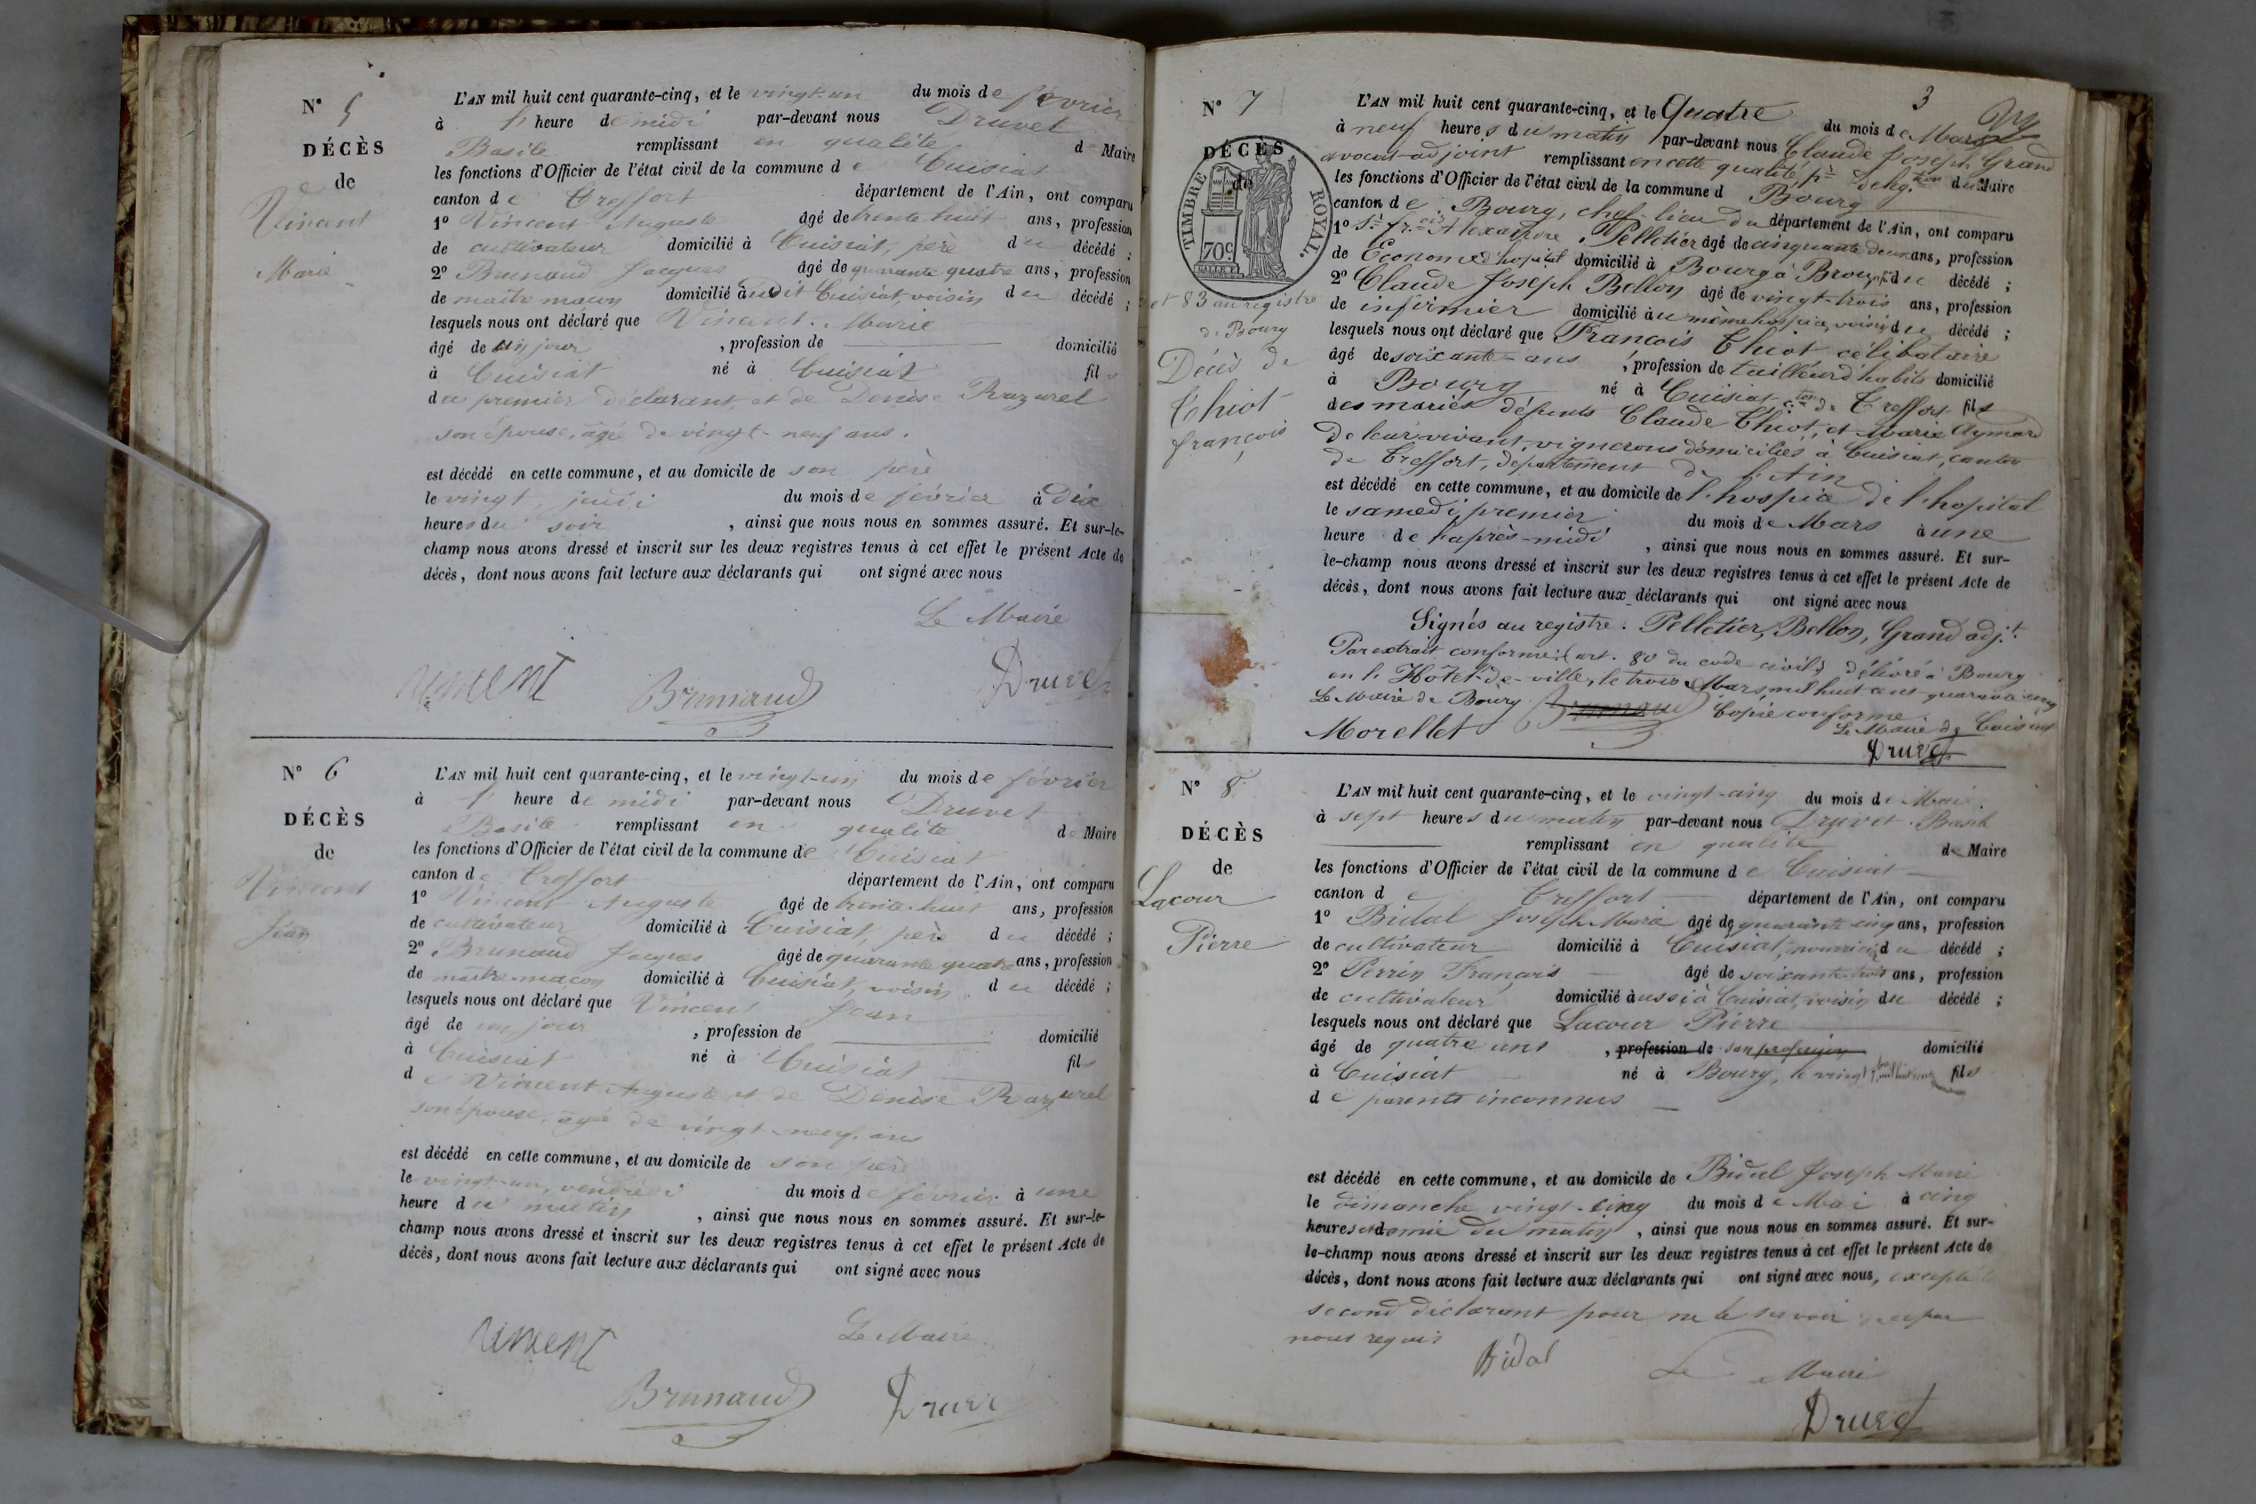 N° 5
DÉCÈS
de
Vincent
Marie
L'AN mil huit cent quarante-cinq, et le vingt-un du mois de février
à 1 heure de midi par-devant nous Druvet
Basile remplissant en qualité de Maire
les fonctions d'Officier de l'état civil de la commune de Cuisiat
canton de Treffort département de l'Ain, ont comparu
1° Vincent Auguste âgé de trente huit ans, profession
de cultivateur domicilié à Cuisiat, père du décédé ;
2° Brunaud Jacques âgé de quarante quatre ans, profession
de maître maçon domicilié audit Cuisiat, voisin du décédé ;
lesquels nous ont déclaré que Vincent Marie
âgé de un jour , profession de domicilié
à Cuisiat né à Cuisiat fils
du premier déclarant et de Denise Razurel
son épouse, âgée de vingt-neuf ans.
est décédé en cette commune, et au domicile de son père
le vingt, jeudi du mois de février à dix
heures du soir , ainsi que nous nous en sommes assuré. Et sur-le-
champ nous avons dressé et inscrit sur les deux registres tenus à cet effet le présent Acte de
décès, dont nous avons fait lecture aux déclarants qui ont signé avec nous
Le Maire
Vincent Brunaud Druvet
N° 6
DÉCÈS
de
Vincent
Jean
L'AN mil huit cent quarante-cinq, et le vingt-un du mois de février
à 1 heure de midi par-devant nous Druvet
Basile remplissant en qualité de Maire
les fonctions d'Officier de l'état civil de la commune de Cuisiat
canton de Treffort département de l'Ain, ont comparu
1° Vincent Auguste âgé de trente-huit ans, profession
de cultivateur domicilié à Cuisiat, père du décédé ;
2° Brunaud Jacques âgé de quarante quatre ans, profession
de maître-maçon domicilié à Cuisiat, voisin du décédé ;
lesquels nous ont déclaré que Vincent Jean
âgé de un jour , profession de domicilié
à Cuisiat né à Cuisiat fils
de Vincent Auguste et de Denise Razurel
son épouse, âgée de vingt-neuf ans
est décédé en cette commune, et au domicile de son père
le vingt-un, vendredi du mois de février à une
heure du matin , ainsi que nous nous en sommes assuré. Et sur-le-
champ nous avons dressé et inscrit sur les deux registres tenus à cet effet le présent Acte de
décès, dont nous avons fait lecture aux déclarants qui ont signé avec nous
Le Maire
Vincent Brunaud Druvet
3
N° 7
DÉCÈS
de
TIMBRE ROYAL.
70c
et 83 au registre
de Bourg
Décès de
Thiot
françois
L'AN mil huit cent quarante-cinq, et le Quatre du mois de Mars
à neuf heures du matin par-devant nous Claude Joseph Grand
avocat-adjoint remplissant en cette qualité pr délég.tion du Maire
les fonctions d'Officier de l'état civil de la commune d Bourg
canton de Bourg, chef-lieu du département de l'Ain, ont comparu
1° Sr fr.cois Alexandre Pelletier âgé de cinquante deux ans, profession
de Econome d'hopital domicilié à Bourg à Brou, du décédé ;
2° Claude Joseph Bellon âgé de vingt-trois ans, profession
de infirmier domicilié au même hospice, voisin du décédé ;
lesquels nous ont déclaré que François Thiot célibataire
âgé de soixante-ans , profession de tailleur d'habits domicilié
à Bourg né à Cuisiat, c.ton de Treffort fils
des mariés défunts Claude Thiot, et Marie Aymard
de leur vivant, vignerons domiciliés à Cuisiat, canton
de Treffort, département de l'Ain
est décédé en cette commune, et au domicile de l'hospice de l'hopital
le samedi, premier du mois de Mars à une
heure de l'après-midi , ainsi que nous nous en sommes assuré. Et sur-
le-champ nous avons dressé et inscrit sur les deux registres tenus à cet effet le présent Acte de
décès, dont nous avons fait lecture aux déclarants qui ont signé avec nous
Signés au registre : Pelletier, Bellon, Grand adj.t
Par extrait conforme (art. 80 du code civil) délivré à Bourg
en l'Hôtel-de-ville, le trois Mars mil huit cent quarante cinq
Le Maire de Bourg Brunaud Copie conforme
Le Maire de Cuisiat
Morellet Druvet
N° 8
DÉCÈS
de
Lacour
Pierre
L'AN mil huit cent quarante-cinq, et le vingt-cinq du mois de Mai.
à sept heures du matin par-devant nous Druvet Basile
remplissant en qualité de Maire
les fonctions d'Officier de l'état civil de la commune de Cuisiat
canton de Treffort département de l'Ain, ont comparu
1° Bidal Joseph Marie âgé de quarante cinq ans, profession
de cultivateur domicilié à Cuisiat, nourricier du décédé ;
2° Perrin François âgé de soixante-trois ans, profession
de cultivateur domicilié aussi à Cuisiat, voisin du décédé ;
lesquels nous ont déclaré que Lacour Pierre
âgé de quatre ans , profession de san profession domicilié
à Cuisiat né à Bourg, le vingt fils
de parents inconnus
est décédé en cette commune, et au domicile de Bidal Joseph Marie
le dimanche vingt-cinq du mois de Mai à cinq
heures et demie du matin , ainsi que nous nous en sommes assuré. Et sur-
le-champ nous avons dressé et inscrit sur les deux registres tenus à cet effet le présent Acte de
décès, dont nous avons fait lecture aux déclarants qui ont signé avec nous, excepté le
second déclarant pour ne le savoir
nous requis
Bidal Le Maire
Druvet